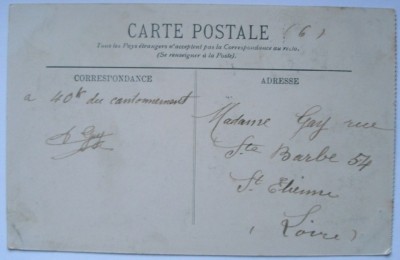 CARTE POSTALE
(6)
Tous les Pays étrangers n'acceptent pas la Correspondance au recto.
(Se renseigner à la Poste).
CORRESPONDANCE
a 40k du cantonnement
Gay
ADRESSE
Madame Gay rue
Ste Barbe 54
St Etienne
(Loire)